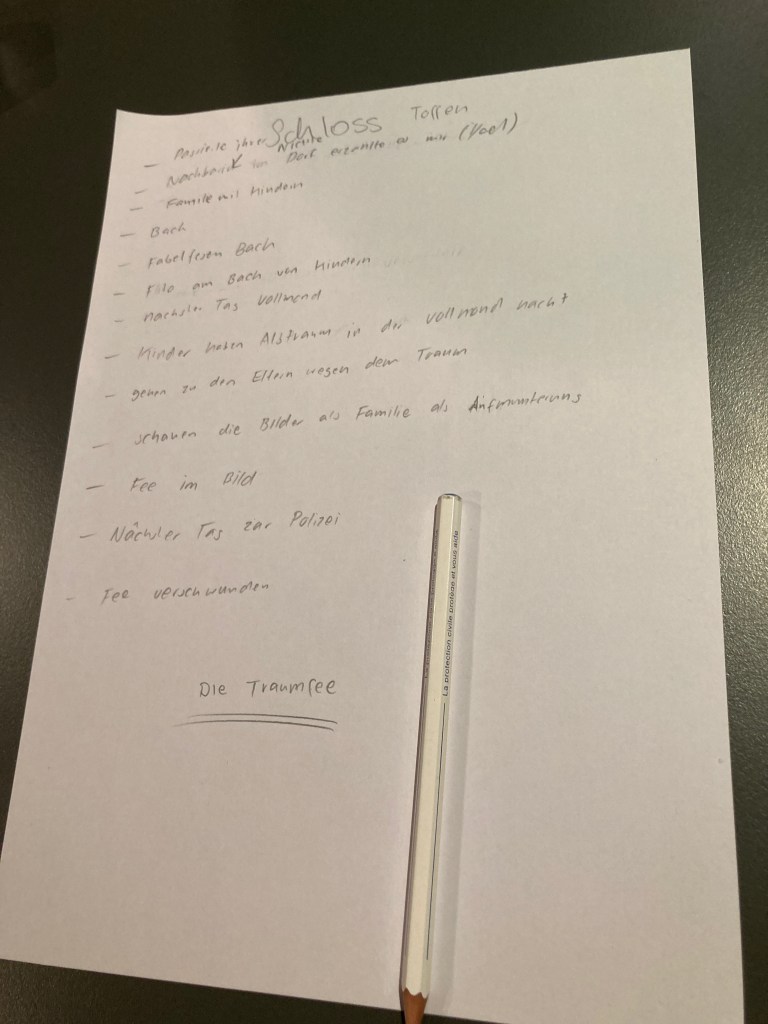 Schloss Toffen
- Passierte ihrer Nichte
- Nachbarin im Dorf erzählte es mir
- Familie mit Kindern
- Bach
- Fabelfesen Bach
- Foto am Bach von Kindern
- nächster Tag Vollmond
- Kinder haben Albtraum in der vollmond nacht
- gehen zu den Eltern wegen dem Traum
- schauen die Bilder als Familie als Aufmunterung
- Fee im Bild
- Nächster Tag zur Polizei
- Fee verschwunden
Die Traumfee
La protection civile protège et vous aide